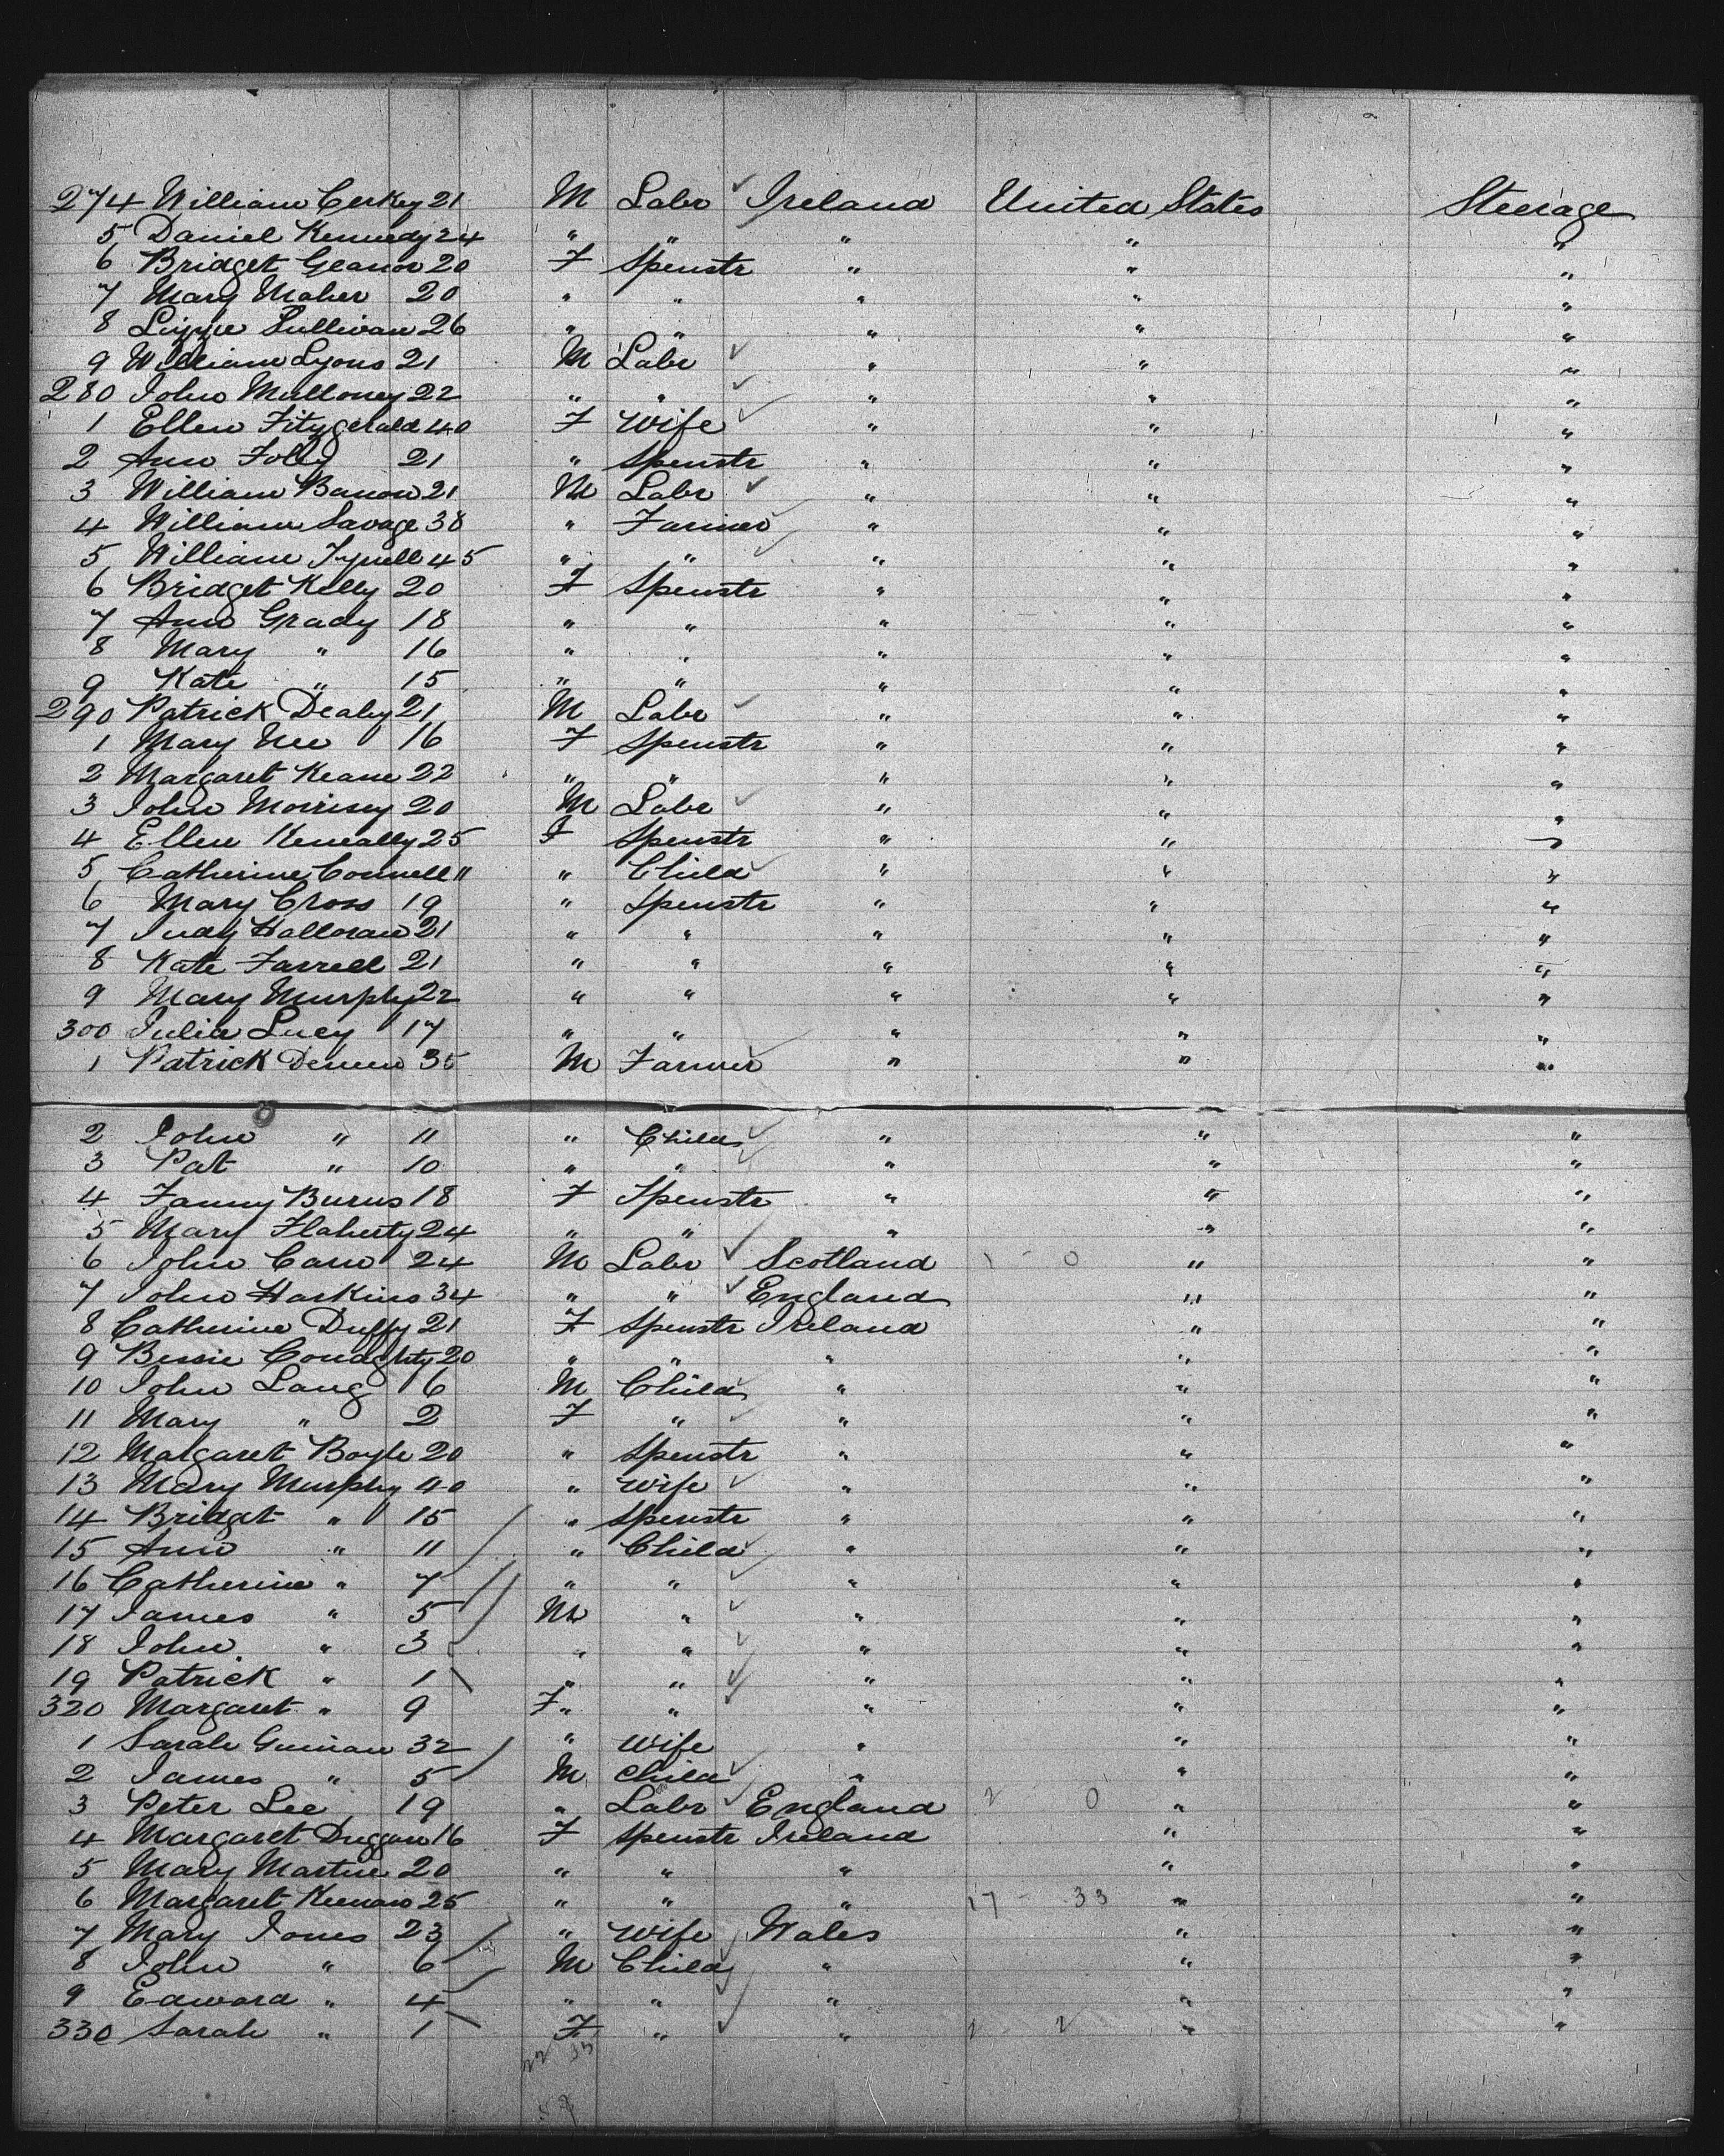 274 William Cerkey 21 M Labr Ireland United States Steerage
5 Daniel Kennedy 24 " " " " "
6 Bridget Geanor 20 F Spenstr " " "
7 Mary Maher 20 " " " " "
8 Lizzie Sullivan 26 " " " " "
9 William Lyons 21 M Labr " " "
280 John Mulloney 22 " " " " "
1 Ellen Fitzgerald 40 F Wife " " "
2 Ann Foley 21 " Spenstr " " "
3 William Banon 21 M Labr " " "
4 William Savage 38 " Farmer " " "
5 William Tyrell 45 " " " " "
6 Bridget Kelly 20 F Spenstr " " "
7 Ann Grady 18 " " " " "
8 Mary " 16 " " " " "
9 Kate " 15 " " " " "
290 Patrick Dealy 21 M Labr " " "
1 Mary Nee 16 F Spenstr " " "
2 Margaret Keane 22 " " " " "
3 John Morrisey 20 M Labr " " "
4 Ellen Keneally 25 F Spenstr " " "
5 Catherine Connell 11 " Child " " "
6 Mary Cross 19 " Spenstr " " "
7 Judy Halloran 21 " " " " "
8 Kate Farrell 21 " " " " "
9 Mary Murphy 22 " " " " "
300 Julia Lucy 17 " " " " "
1 Patrick 35 M Farmer " " "
2 John " 11 " Child " " "
3 Pat " 10 " " " " "
4 Fanny Burns 18 F Spenstr " " "
5 Mary Flaherty 24 " " " " "
6 John Cain 24 M Labr Scotland 1 - 0 " "
7 John Harkins 34 " " England " "
8 Catherine Duffy 21 F Spenstr Ireland " "
9 Bessie Conaghty 20 " " " " "
10 John Lang 6 M Child " " "
11 Mary " 2 F " " " "
12 Margaret Boyle 20 " Spenstr " " "
13 Mary Murphy 40 " Wife " " "
14 Bridget " 15 " Spenstr " " "
15 Ann " 11 " Child " " "
16 Catherine " 7 " " " " "
17 James " 5 M " " " "
18 John " 3 " " " " "
19 Patrick " 1 " " " " "
320 Margaret " 9 F " " " "
1 Sarah Guinan 32 " Wife " " "
2 James " 5 M Child " " "
3 Peter Lee 19 " Labr England 2 0 " "
4 Margaret Duggan 16 F Spenstr Ireland " "
5 Mary Martin 20 " " " " "
6 Margaret Keenan 25 " " " 17 - 33 " "
7 Mary Jones 23 " Wife Wales " "
8 John " 6 M Child " " "
9 Edward " 4 " " " " "
330 Sarah " 1 F " " 2 2 " "